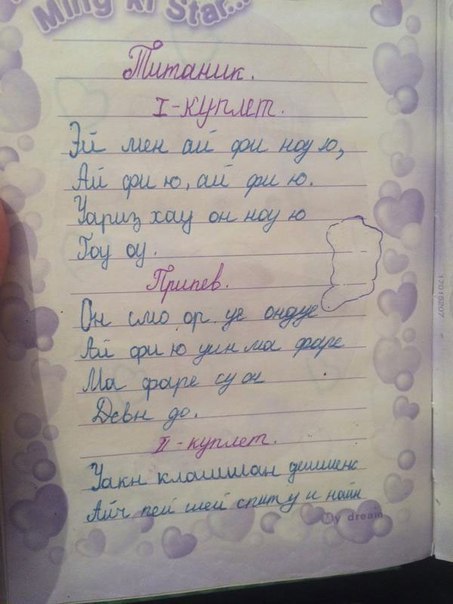 Ming xi Star...
Титаник.
I-куплет.
Эй мен ай фи ноу ю,
Ай фи ю, ай фи ю.
Уариз хау он ноу ю
Гоу оу.
Припев.
Он смо ор уе ондуе
Ай фи ю уин ма фаре
Ма фаре су он
Девн до.
II-куплет.
Уакн клашиан дешиенс
Айч пей шей спиту и найн
My dream
17015207